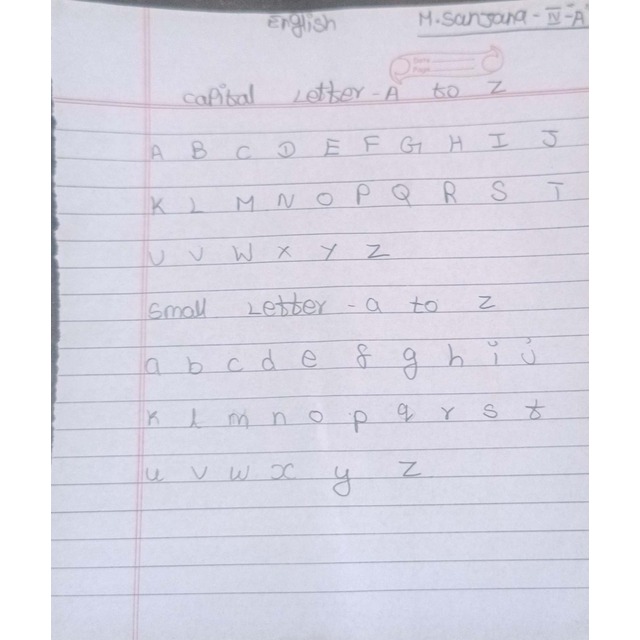 English M. Sanjana - IV - A
Date
Page
Capital Letter - A to Z
A B C D E F G H I J
K L M N O P Q R S T
U V W X Y Z
Small Letter - a to z
a b c d e f g h i j
k l m n o p q r s t
u v w x y z